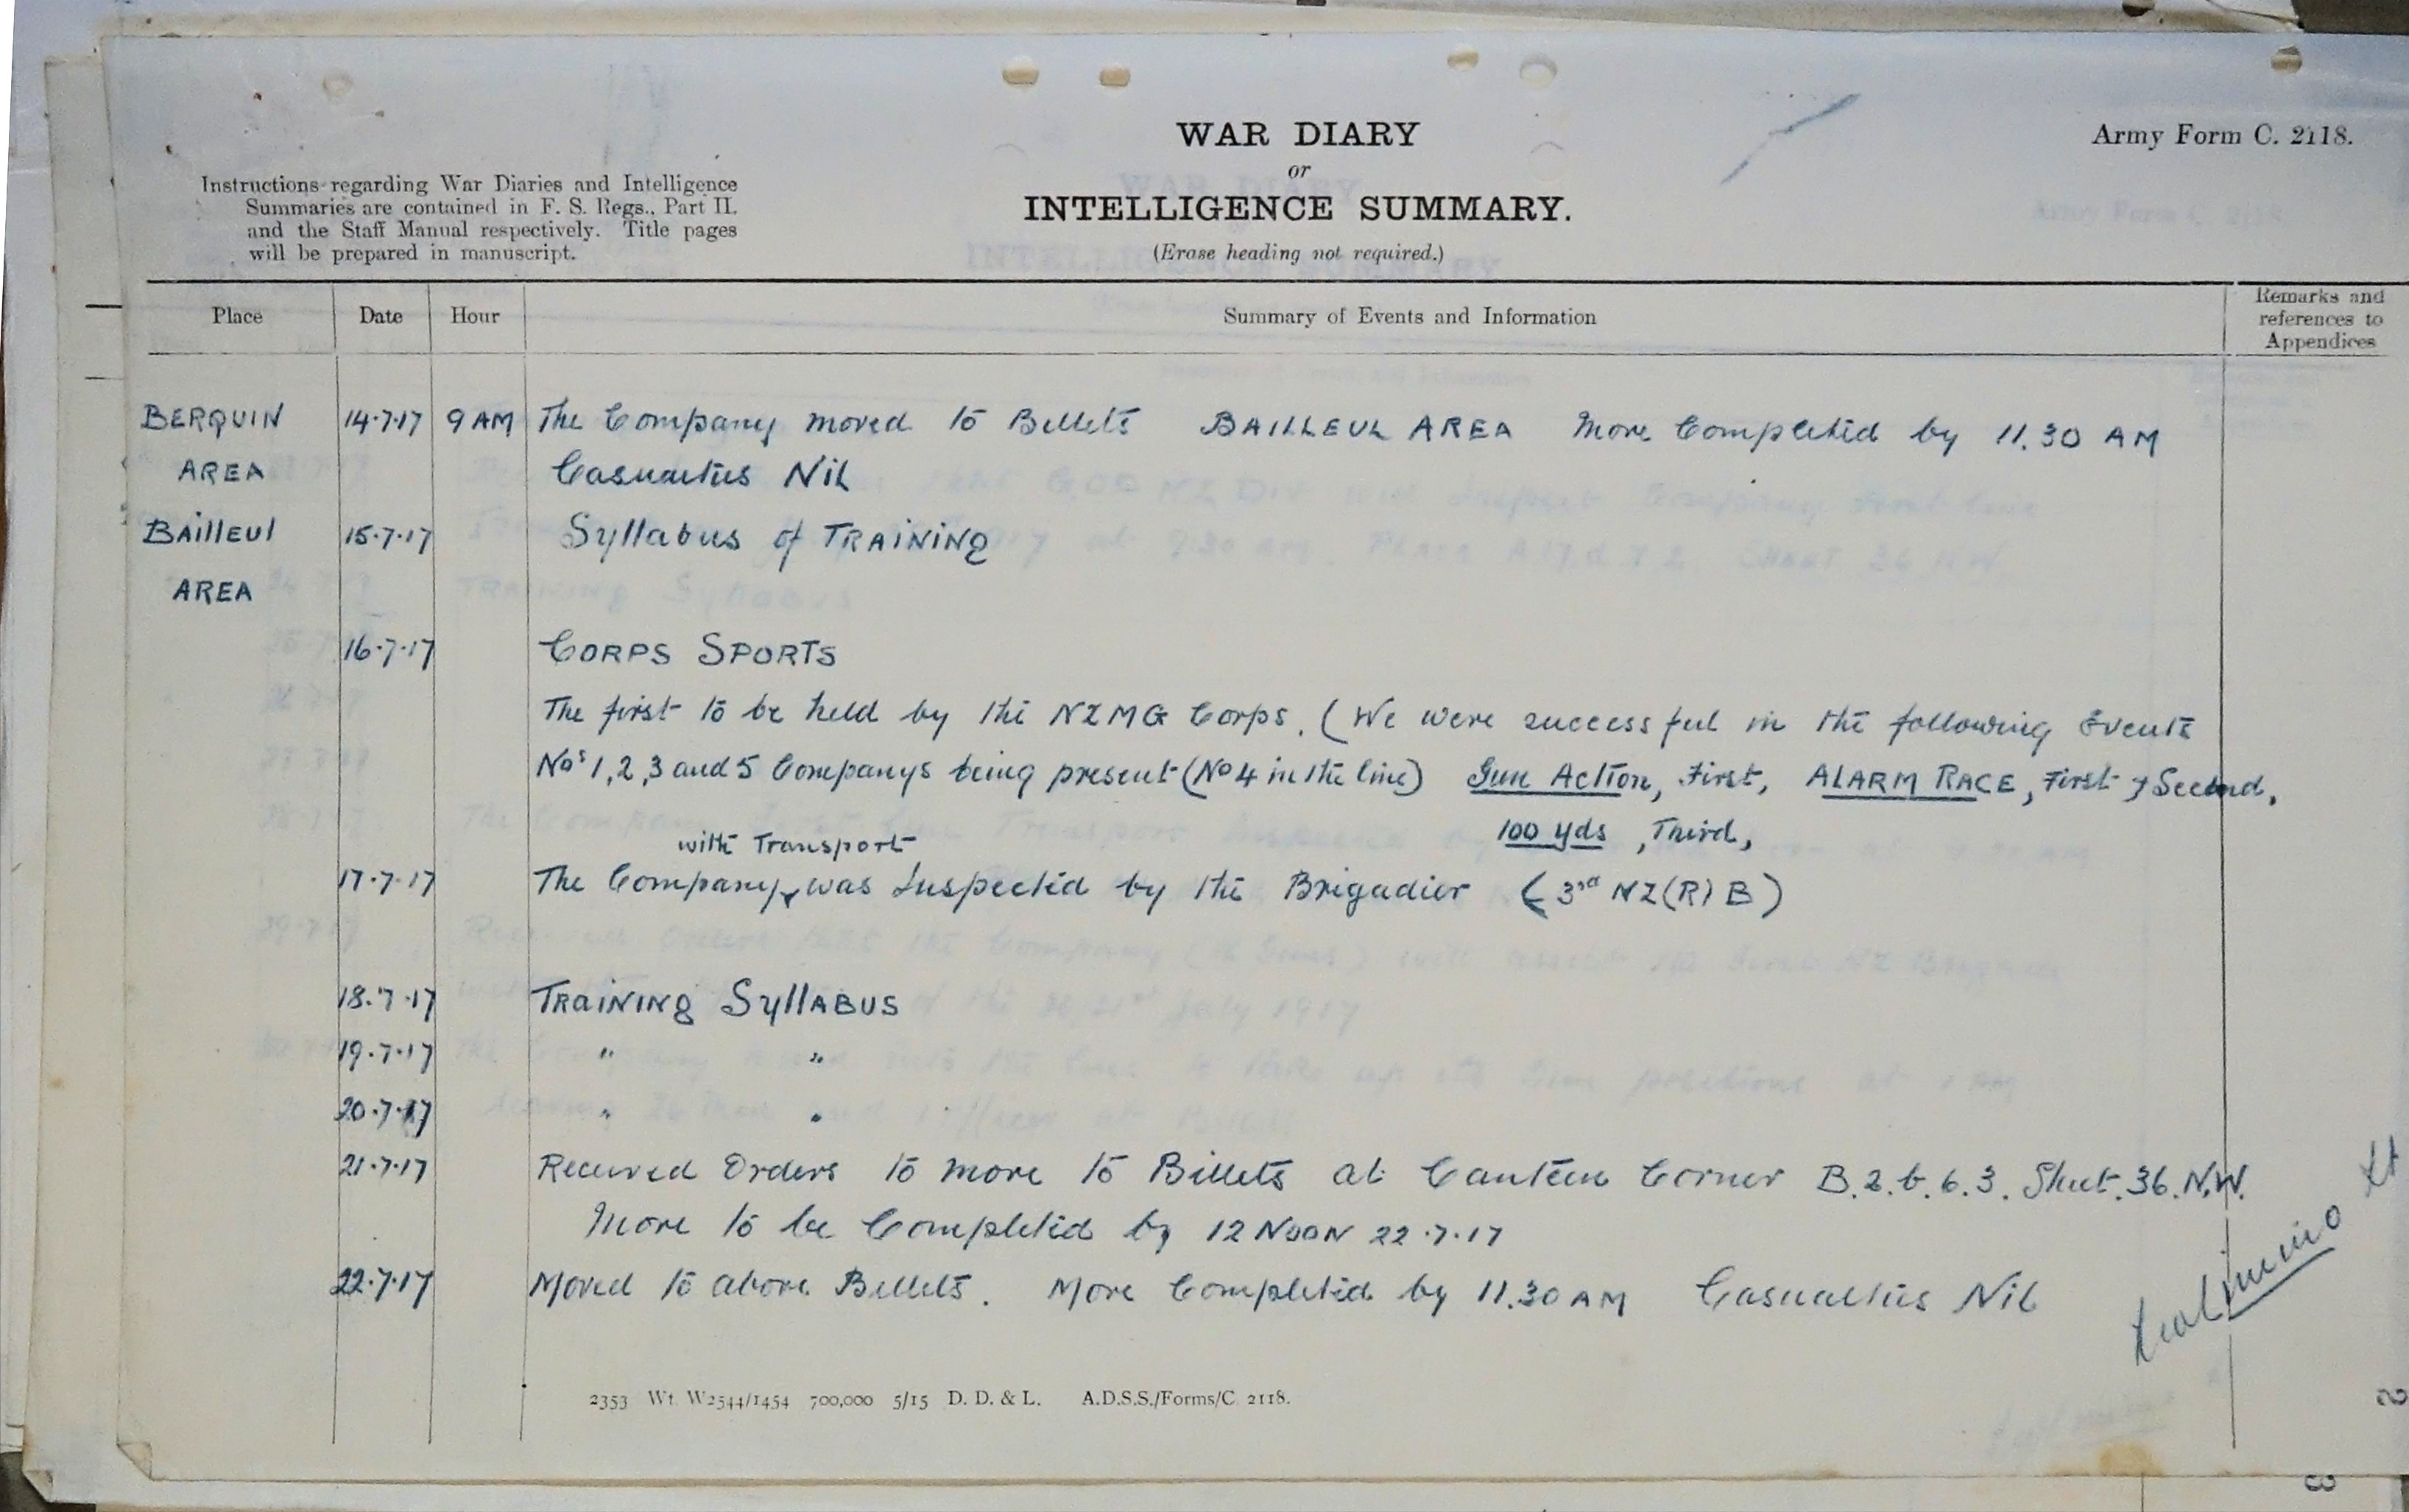 WAR DIARY
or
INTELLIGENCE SUMMARY.
(Erase heading not required.)
Army Form C. 2118.
Instructions regarding War Diaries and Intelligence
Summaries are contained in F. S. Regs., Part II.
and the Staff Manual respectively. Title pages
will be prepared in manuscript.
Place Date Hour Summary of Events and Information Remarks and references to Appendices
BERQUIN 14.7.17 9 AM The Company moved to Billets BAILLEUL AREA Move Completed by 11.30 AM
AREA Casualties Nil
Bailleul 15.7.17 Syllabus of TRAINING
AREA
16.7.17 CORPS SPORTS
The first to be held by the NZMG Corps. (We were successful in the following Events
Nos 1, 2, 3 and 5 Companys being present (No 4 in the line) Gun Action, First, ALARM RACE, First & Second,
100 yds, Third,
with Transport
17.7.17 The Company was Inspected by the Brigadier (3rd NZ (R) B)
18.7.17 TRAINING SyllABUS
19.7.17 " "
20.7.17 " "
21.7.17 Received Orders to move to Billets at Canteen Corner B.2.b.6.3. Sheet.36.N.W.
Move to be Completed by 12 NOON 22.7.17
22.7.17 Moved to above Billets. Move Completed by 11.30 AM Casualties Nil
Lt
2353 Wt. W2544/1454 700,000 5/15 D. D. & L. A.D.S.S./Forms/C 2118.
2
3